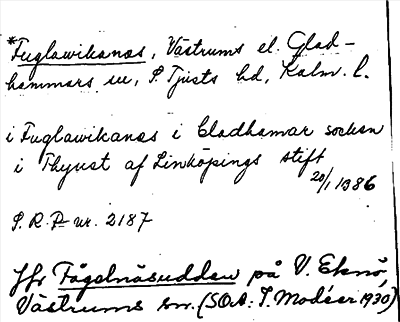 *Fuglawikanæs, Västrums el. Glad-
hammars sn, S. Tjusts hd, Kalm. l.
i Fuglawikanæs i Gladhamar socken
i Thyust af Linköpings stift
20/1 1386
S.R.P. nr. 2187
Jfr Fågelnäsudden på V. Eknö,
Västrums sn. (SOA: I. Modéer 1930)